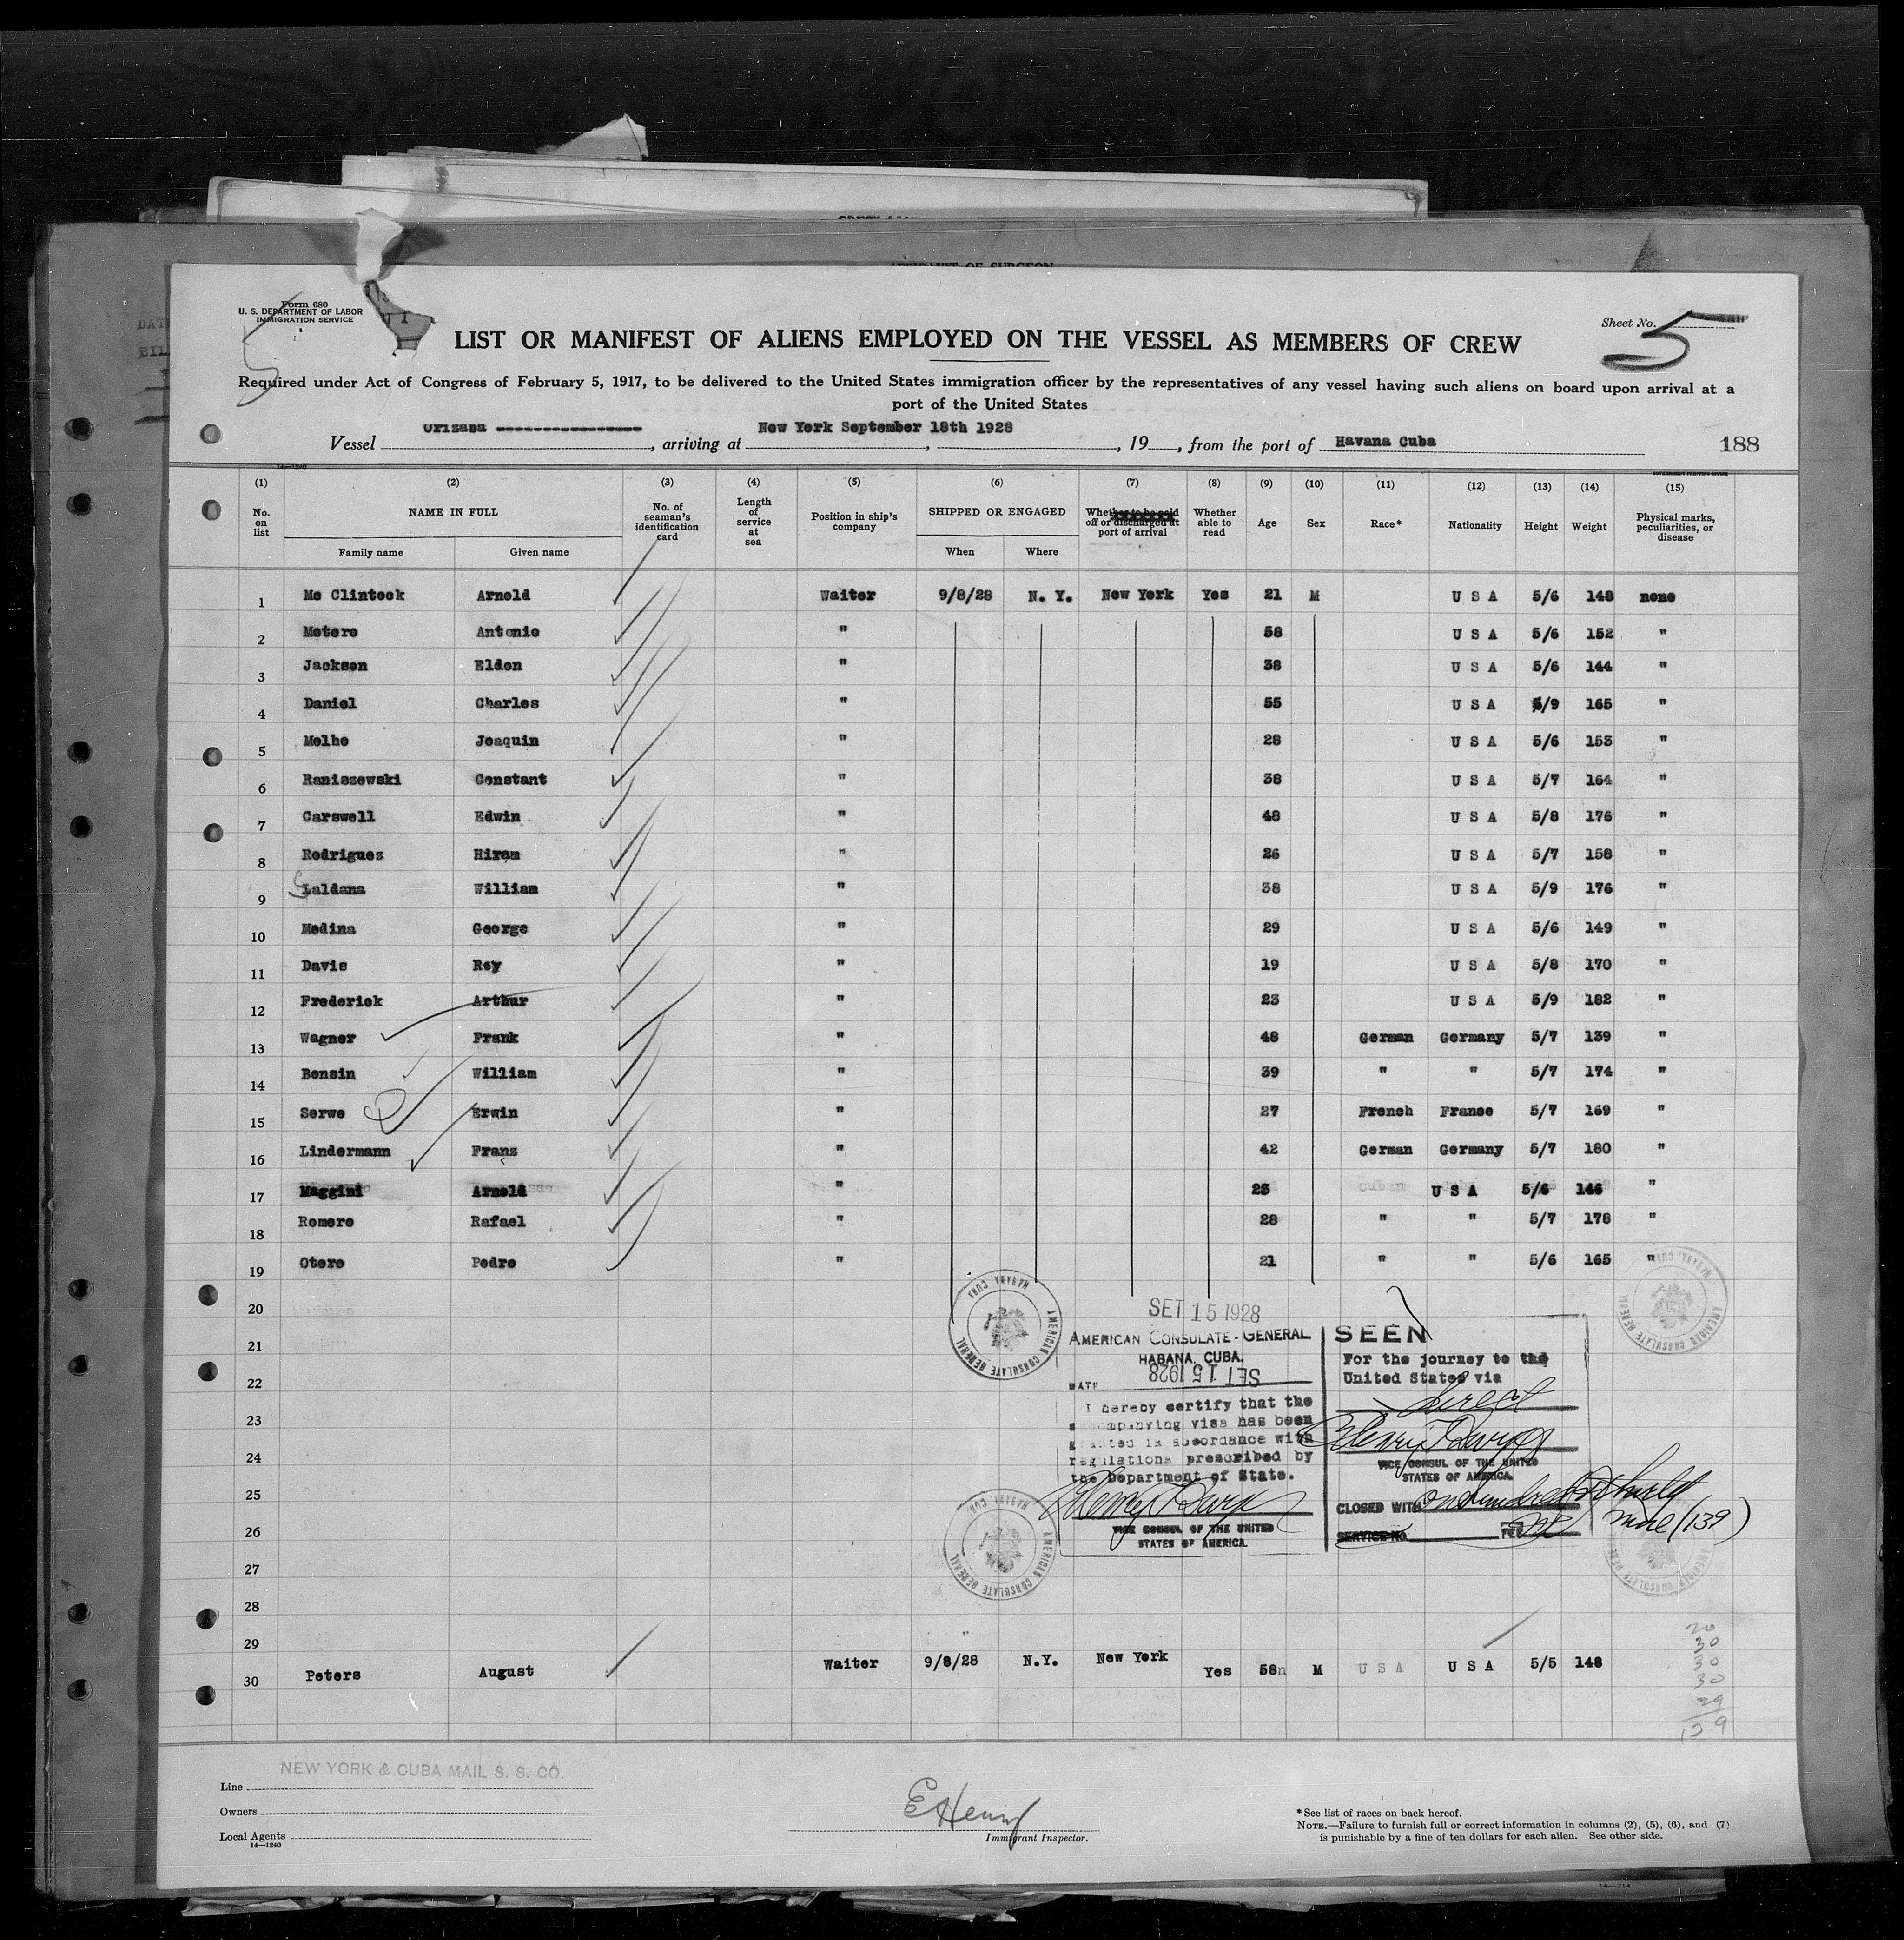 Form 680
U. S. DEPARTMENT OF LABOR
IMMIGRATION SERVICE
Sheet No. 5
LIST OR MANIFEST OF ALIENS EMPLOYED ON THE VESSEL AS MEMBERS OF CREW
Required under Act of Congress of February 5, 1917, to be delivered to the United States immigration officer by the representatives of any vessel having such aliens on board upon arrival at a
port of the United States
Vessel Orizaba, arriving at New York September 18th 1928, 19, from the port of Havana Cuba 188
14—1240
(1) (2) (3) (4) (5) (6) (7) (8) (9) (10) (11) (12) (13) (14) (15)
No. on list NAME IN FULL No. of seaman's identification card Length of service at sea Position in ship's company SHIPPED OR ENGAGED Whether to be paid off or discharged at port of arrival Whether able to read Age Sex Race* Nationality Height Weight Physical marks, peculiarities, or disease
Family name Given name When Where
1 Mc Clintock Arnold Waiter 9/8/28 N. Y. New York Yes 21 M U S A 5/6 148 none
2 Motero Antonio " 58 U S A 5/6 152 "
3 Jackson Eldon " 38 U S A 5/6 144 "
4 Daniel Charles " 55 U S A 5/9 165 "
5 Molho Joaquin " 28 U S A 5/6 153 "
6 Raniszewski Constant " 38 U S A 5/7 164 "
7 Carswell Edwin " 48 U S A 5/8 176 "
8 Rodriguez Hiram " 26 U S A 5/7 158 "
9 Laldana William " 38 U S A 5/9 176 "
10 Medina George " 29 U S A 5/6 149 "
11 Davis Roy " 19 U S A 5/8 170 "
12 Frederick Arthur " 23 U S A 5/9 182 "
13 Wagner Frank " 48 German Germany 5/7 139 "
14 Bensin William " 39 " " 5/7 174 "
15 Serwe Erwin " 27 French France 5/7 169 "
16 Lindermann Franz " 42 German Germany 5/7 180 "
17 Maggini Arnold " 25 Cuban U S A 5/6 146 "
18 Romero Rafael " 28 " " 5/7 178 "
19 Otero Pedro " 21 " " 5/6 165 "
20
21
22
23
24
25
26
27
28
29
30 Peters August Waiter 9/8/28 N.Y. New York Yes 58 M U S A U S A 5/5 148
SET 15 1928
AMERICAN CONSULATE-GENERAL
HABANA, CUBA.
SET 15 1928
DATE
I hereby certify that the
accompanying visa has been
granted in accordance with
regulations prescribed by
the Department of State.
VICE CONSUL OF THE UNITED
STATES OF AMERICA.
SEEN
For the journey to the
United States via
direct
VICE CONSUL OF THE UNITED
STATES OF AMERICA.
CLOSED WITH one hundred & thirty
nine (139)
SERVICE No. FEE
AMERICAN CONSULATE GENERAL HABANA, CUBA
AMERICAN CONSULATE GENERAL HABANA, CUBA
AMERICAN CONSULATE GENERAL HABANA, CUBA
AMERICAN CONSULATE GENERAL HABANA, CUBA
20
30
30
30
29
139
Line NEW YORK & CUBA MAIL S. S. CO.
Owners
Local Agents
14—1240
E Henry
Immigrant Inspector.
*See list of races on back hereof.
NOTE.—Failure to furnish full or correct information in columns (2), (5), (6), and (7)
is punishable by a fine of ten dollars for each alien. See other side.